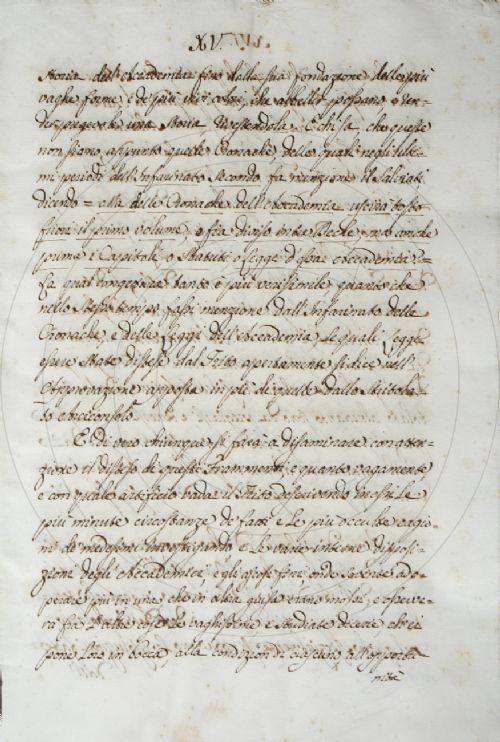 XVIII.
Storia dell'Accademia fino dalla sua fondazione delle più
vaghe forme, e de' più vivi colori, che abbellir possano e ren-
der pregevole una Storia, vestendola. E chi sa, che queste
non siano appunto quelle Cronache, delle quali negli ulti-
mi periodi dell'Infarinato Secondo fa menzione il Salviati
dicendo = ella delle Cronache dell'Accademia usciva tosto
fuori il primo volume, o sia diviso in tre Deche, ma anche
prima i Capitoli, o Statuti, o Legge d'essa Accademia =
La qual congettura tanto è più verisimile quanto che
nello stesso tempo fassi menzione dall'Infarinato delle
Cronache, e delle Leggi dell'Accademia, le quali Leggi
essere state distese dal Trito apertamente si dice nell'
Approvazione apposta in piè di quelle dallo Stritola-
to Arciconsolo.
E di vero chiunque si farà a disaminare con atten-
zione il disteso di questi Frammenti, e quanto vagamente
e con quale artificio vada il Trito descrivendo in essi le
più minute circostanze de' fatti e le più occulte cagio-
ni de' medesimi investigando e le varie interne disposi-
zioni degli Accademici, e gli ascosi fini onde sovente ado-
perare più in una che in altra guisa erano mossi, e osserve-
rà fra l'altre cose le vaghissime e studiate dicerie ch'ei
pone loro in bocca, alla condizion di ciascuno, all'opportu-
nità